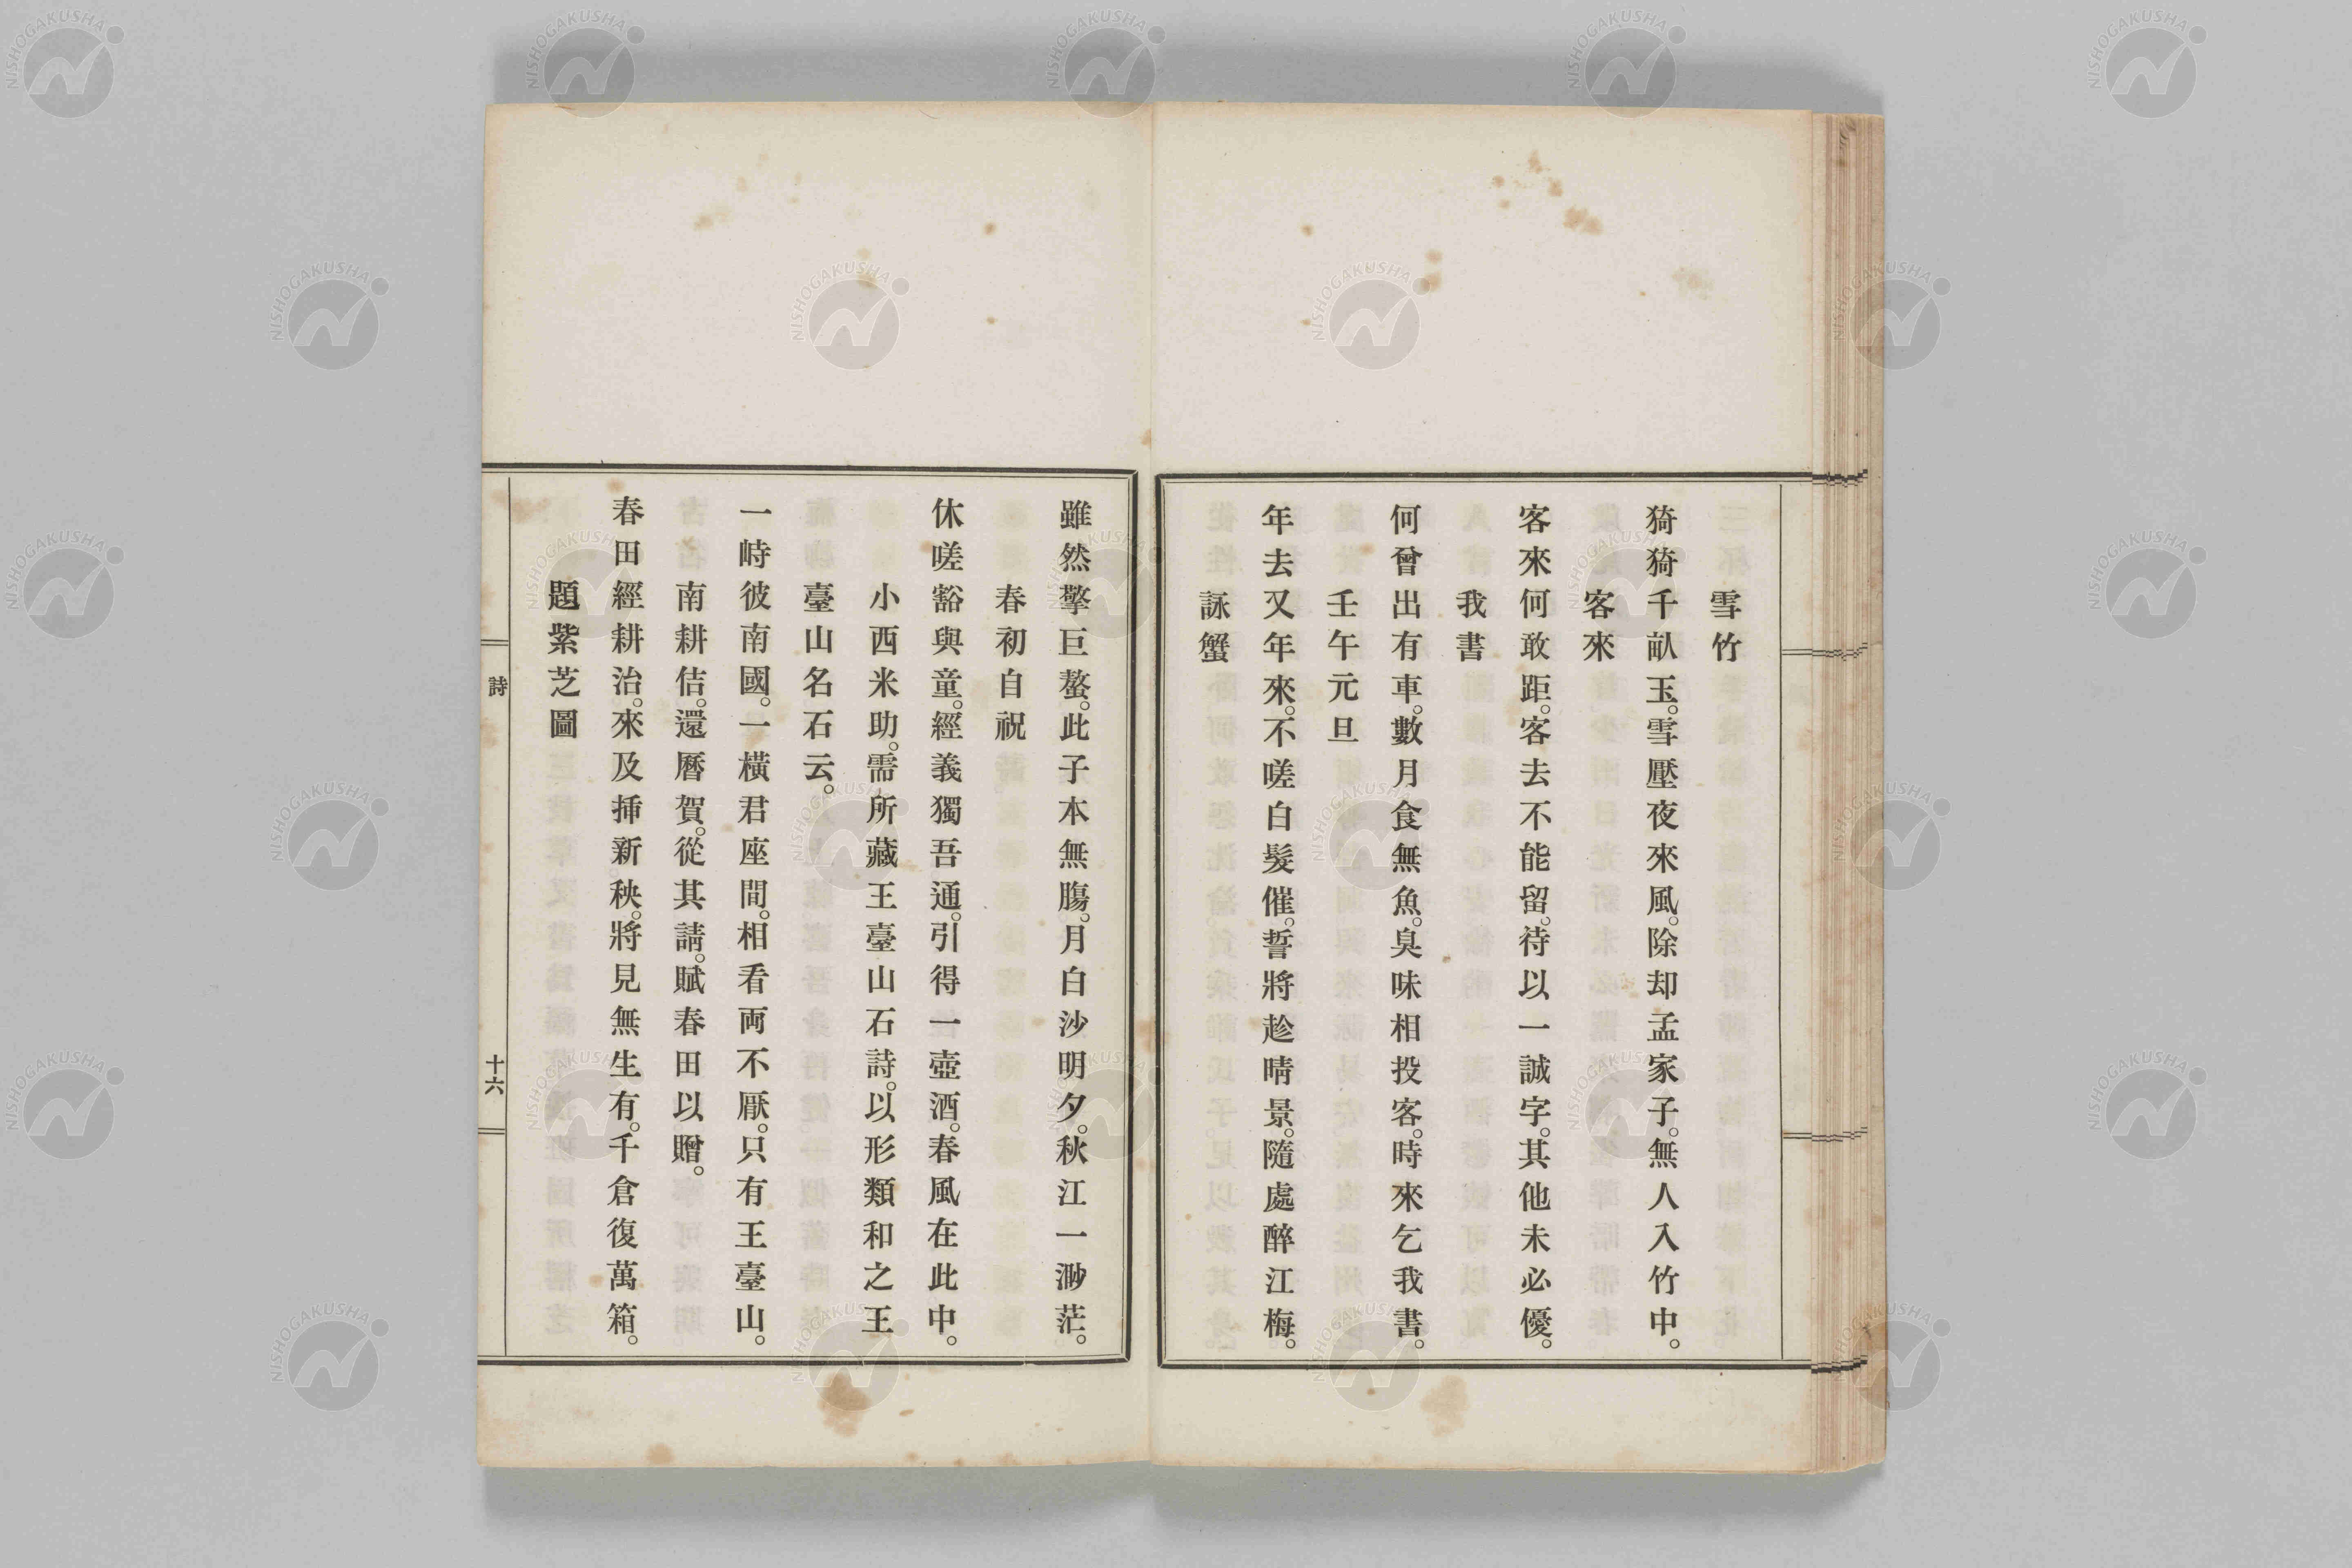 雪竹
猗猗千畝玉。雪壓夜來風。除却孟家子。無人入竹中。
客來
客來何敢距。客去不能留。待以一誠字。其他未必優。
我書
何曾出有車。數月食無魚。臭味相投客。時來乞我書。
壬午元旦
年去又年來。不嗟白髮催。誓將趁晴景。隨處醉江梅。
詠蟹
雖然擎巨螯。此子本無膓。月白沙明夕。秋江一渺茫。
春初自祝
休嗟豁與童。經義獨吾通。引得一壺酒。春風在此中。
小西米助。需所藏王臺山石詩。以形類和之王
臺山名石云。
一峙彼南國。一橫君座間。相看両不厭。只有王臺山。
南耕佶。還曆賀。從其請。賦春田以贈。
春田經耕治。來及挿新秧。將見無生有。千倉復萬箱。
題紫芝圖
詩
十六
NISHOGAKUSHA